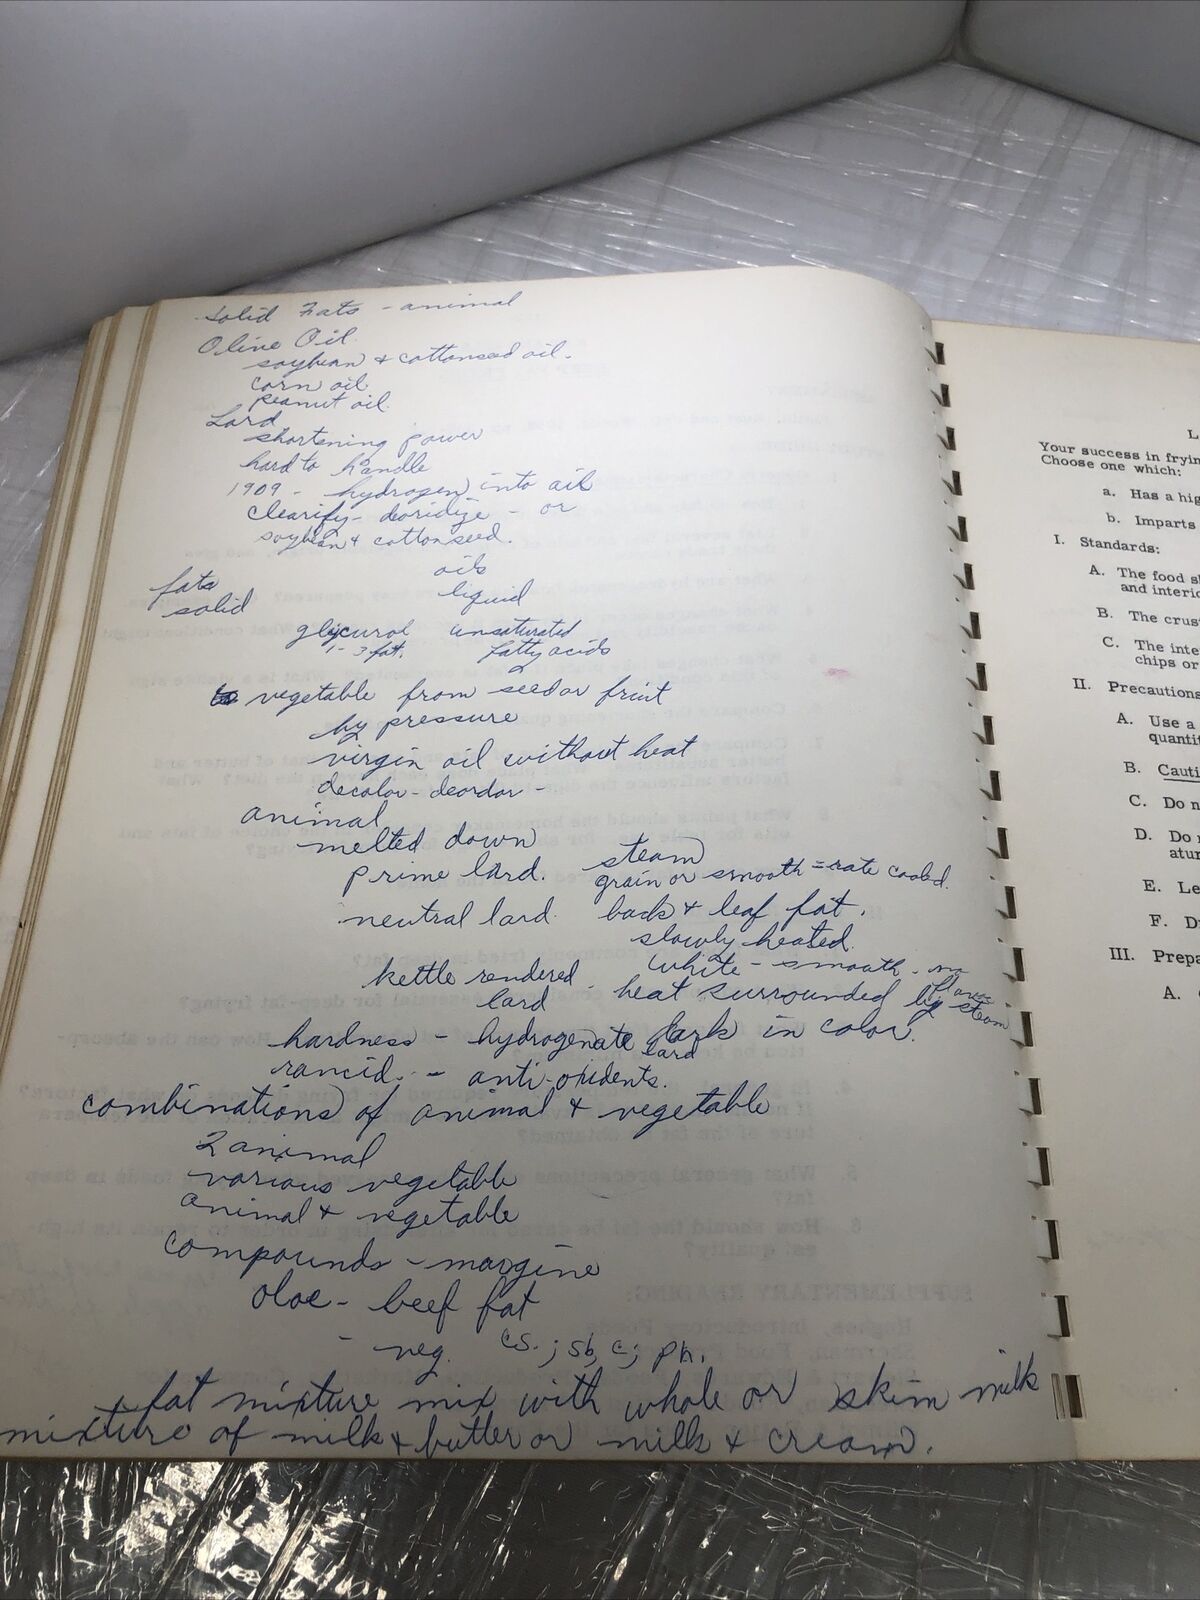 Solid Fats - animal
Olive Oil
soybean & cottonseed oil.
corn oil
peanut oil
Lard
shortening power
hard to handle
1909 - hydrogen into oil
clearify - deoridize - or
soybean & cottonseed.
oils
fats
liquid
solid
glycurol unsaturated
1-3 fat. fatty acids
vegetable from seed or fruit
by pressure
virgin oil without heat
decolor - deordor -
animal
melted down
prime lard. steam
grain or smooth = rate cooled.
neutral lard back & leaf fat.
slowly heated.
white - smooth - no
flavor
kettle rendered - heat surrounded by steam
lard dark in color.
hardness - hydrogenate lard
rancid. - anti-oxidents.
combinations of animal & vegetable
2 animal
various vegetable
animal & vegetable
compounds - margine
oloe - beef fat
- veg. cs. ; sb, c; pn.
fat mixture mix with whole or skim milk
mixture of milk & butter or milk & cream.
L
Your success in fryin
Choose one which:
a. Has a hig
b. Imparts
I. Standards:
A. The food s
and interio
B. The crus
C. The inte
chips or
II. Precautions
A. Use a
quantit
B. Cauti
C. Do n
D. Do
atur
E. Le
F. D
III. Prepa
A.